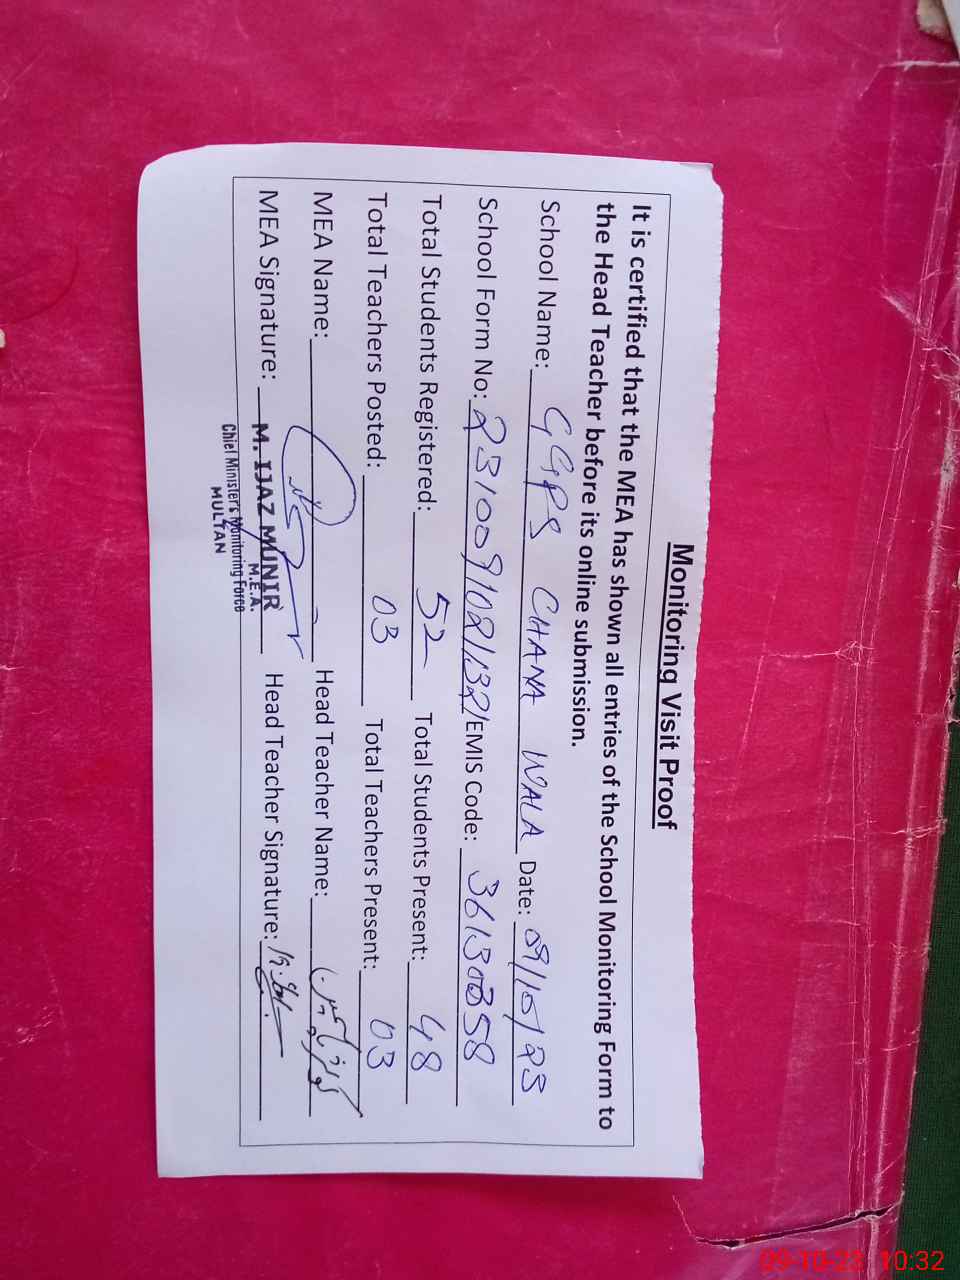 Monitoring Visit Proof
It is certified that the MEA has shown all entries of the School Monitoring Form to
the Head Teacher before its online submission.
School Name: GGPS CHANA WALA Date: 09/10/23
School Form No: 231009/021132/EMIS Code: 36130358
Total Students Registered: 52 Total Students Present: 48
Total Teachers Posted: 03 Total Teachers Present: 03
MEA Name: Head Teacher Name:
MEA Signature: Head Teacher Signature:
M. IJAZ MUNIR
M.E.A.
Chief Minister's Monitoring Force
MULTAN
09-10-23 10:32